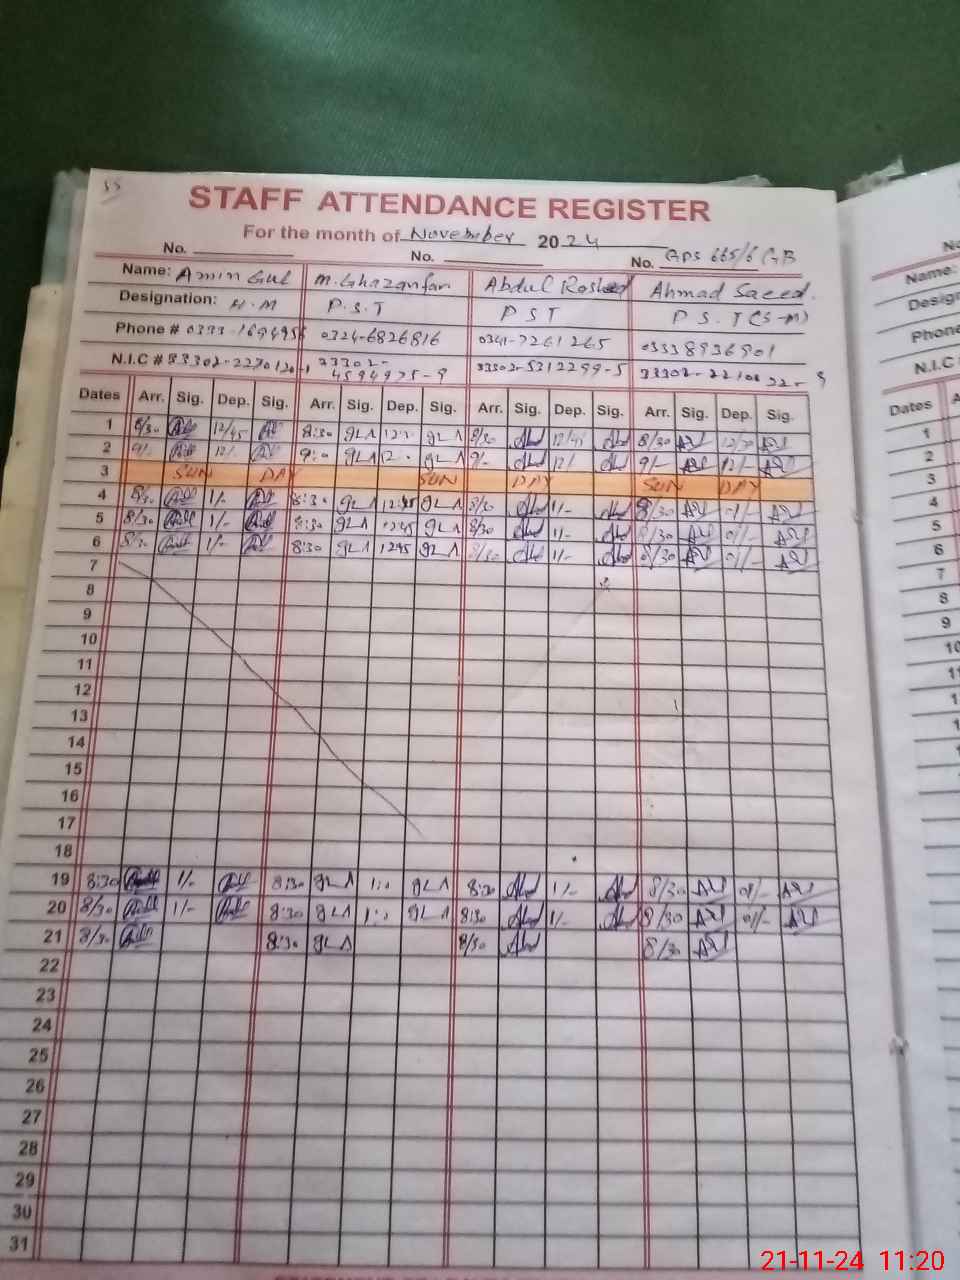 STAFF ATTENDANCE REGISTER
For the month of November 2024
No. No. No. GPS 665/6 GB
Name: Amin Gul M.Ghazanfar Abdul Rasheed Ahmad Saeed.
Designation: H.M P.S.T PST P S.T (S-M)
Phone # 0324-6826816 0341-7261265 03338936901
N.I.C # 33302-2270120-1 33302-4594975-9 33302-5312299-5
Dates Arr. Sig. Dep. Sig. Arr. Sig. Dep. Sig. Arr. Sig. Dep. Sig. Arr. Sig. Dep. Sig.
1 8/30 12/45 8:30 8/30 12/45 8/30 12/30
2 9/- 12/- 9:0 9/- 12/- 9/- 12/-
3 SUN DAY SUN DAY SUN DAY
4 8/30 1/- 8:30 12:45 8/30 1/- 8/30 01/-
5 8/30 1/- 8:30 1245 8/30 1/- 8/30 01/-
6 8/30 1/- 8:30 1245 8/30 1/- 8/30 01/-
7
8
9
10
11
12
13
14
15
16
17
18
19 8:30 1/- 8:30 1:0 8:30 1/- 8/30 01/-
20 8/30 1/- 8:30 1:0 8:30 1/- 8/30 01/-
21 8/30 8:30 8/30 8/30
22
23
24
25
26
27
28
29
30
31
No
Name:
Design
Phone
N.I.C
Dates
1
2
3
4
5
6
7
8
9
10
11
12
21-11-24 11:20